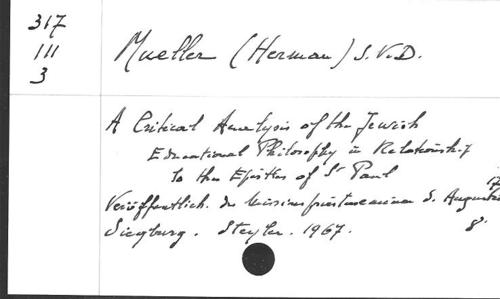 317
111
3
Mueller (Herman) S.V.D.
A Critical Analysis of the Jewish
Educational Philosophy in Relationship
to the Epistles of St Paul
Veröffentlich. d. Missionspriesterseminar S. Augustin
17
Siegburg. Steyler. 1967. 8°